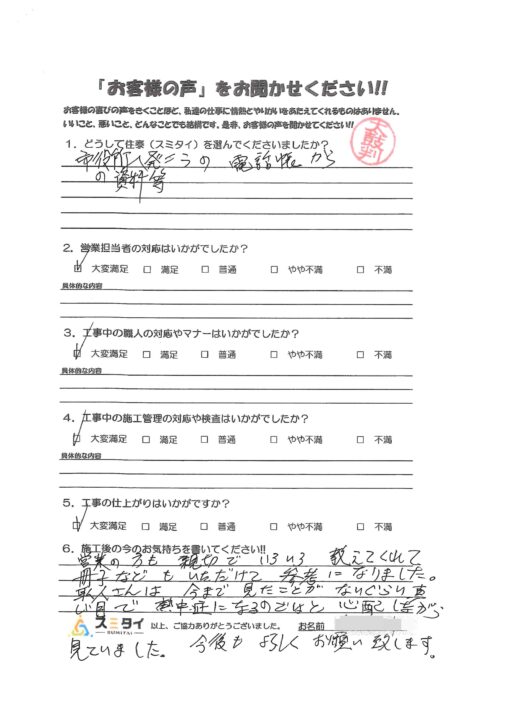 「お客様の声」をお聞かせください!!
お客様の喜びの声をきくことほど、私達の仕事に情熱とやりがいをあたえてくれるものはありません。
いいこと、悪いこと、どんなことでも結構です。是非、お客様の声を聞かせてください!!
太鼓判
1．どうして住泰（スミタイ）を選んでくださいましたか？
市役所入発こうの 電話帳から
の資料等
2．営業担当者の対応はいかがでしたか？
☑ 大変満足 □ 満足 □ 普通 □ やや不満 □ 不満
具体的な内容
3．工事中の職人の対応やマナーはいかがでしたか？
☑ 大変満足 □ 満足 □ 普通 □ やや不満 □ 不満
具体的な内容
4．工事中の施工管理の対応や検査はいかがでしたか？
☑ 大変満足 □ 満足 □ 普通 □ やや不満 □ 不満
具体的な内容
5．工事の仕上がりはいかがですか？
☑ 大変満足 □ 満足 □ 普通 □ やや不満 □ 不満
6．施工後の今のお気持ちを書いてください!!
営業の方も 親切で いろいろ 教えてくれて
冊子などもいただけて 参考になりました。
職人さんは 今まで見たことがないぐらい真
し目で 熱中症になるのではと 心配しながら
スミタイ
SUMITAI
以上、ご協力ありがとうございました。 お名前
見ていました。 今後も よろしく お願い致します。